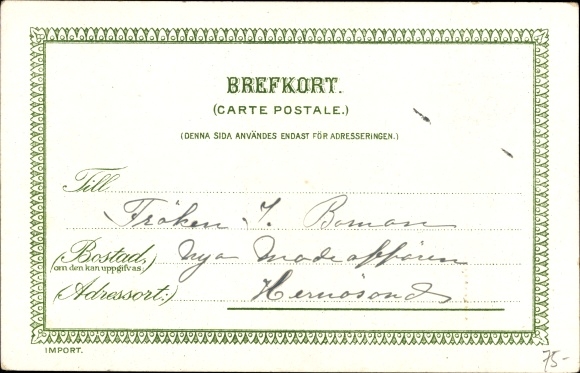 BREFKORT.
(CARTE POSTALE.)
(DENNA SIDA ANVÄNDES ENDAST FÖR ADRESSERINGEN.)
Till
Fröken I. Boman
(Bostad, nya modeaffären
om den kan uppgifvas)
(Adressort:) Hernösand
IMPORT.
75-